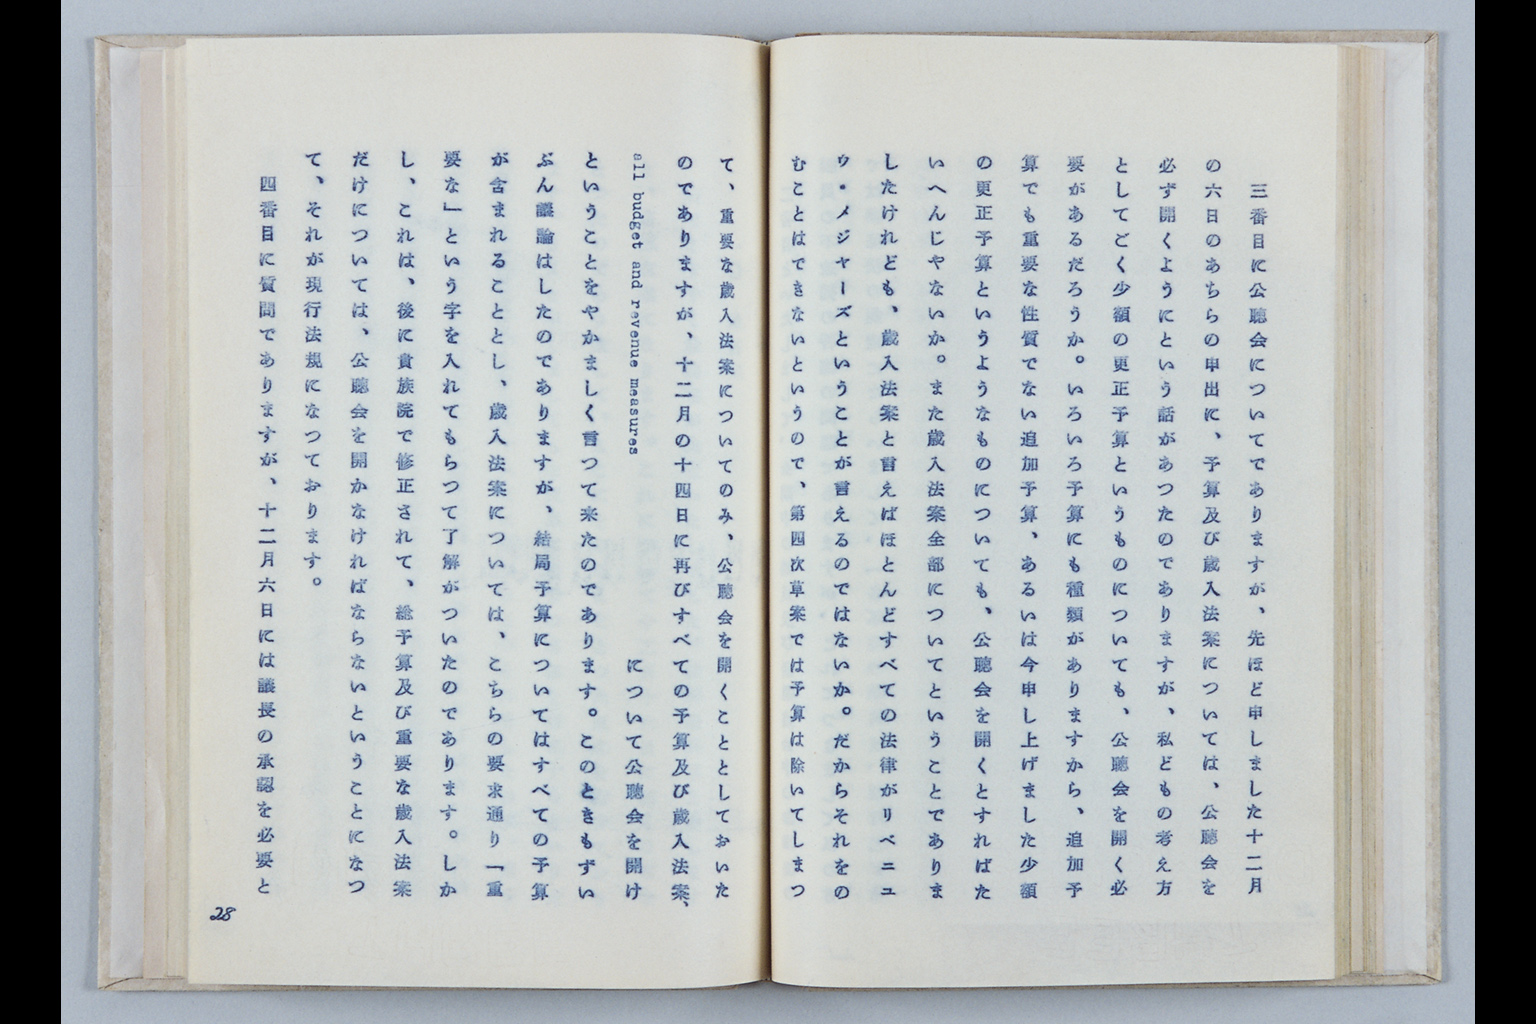 三番目に公聴会についてでありますが、先ほど申しました十二月
の六日のあちらの申出に、予算及び歳入法案については、公聴会を
必ず開くようにという話があつたのでありますが、私どもの考え方
としてごく少額の更正予算というものについても、公聴会を開く必
要があるだろうか。いろいろ予算にも種類がありますから、追加予
算でも重要な性質でない追加予算、あるいは今申し上げました少額
の更正予算というようなものについても、公聴会を開くとすればた
いへんじやないか。また歳入法案全部についてということでありま
したけれども、歳入法案と言えばほとんどすべての法律がリベニユ
ウ・メジヤーズということが言えるのではないか。だからそれをの
むことはできないというので、第四次草案では予算は除いてしまつ
て、重要な歳入法案についてのみ、公聴会を開くこととしておいた
のでありますが、十二月の十四日に再びすべての予算及び歳入法案、
all budget and revenue measures について公聴会を開け
ということをやかましく言つて来たのであります。このときもずい
ぶん議論はしたのでありますが、結局予算についてはすべての予算
が含まれることとし、歳入法案については、こちらの要求通り「重
要な」という字を入れてもらつて了解がついたのであります。しか
し、これは、後に貴族院で修正されて、総予算及び重要な歳入法案
だけについては、公聴会を開かなければならないということになつ
て、それが現行法規になつております。
四番目に質問でありますが、十二月六日には議長の承認を必要と
28